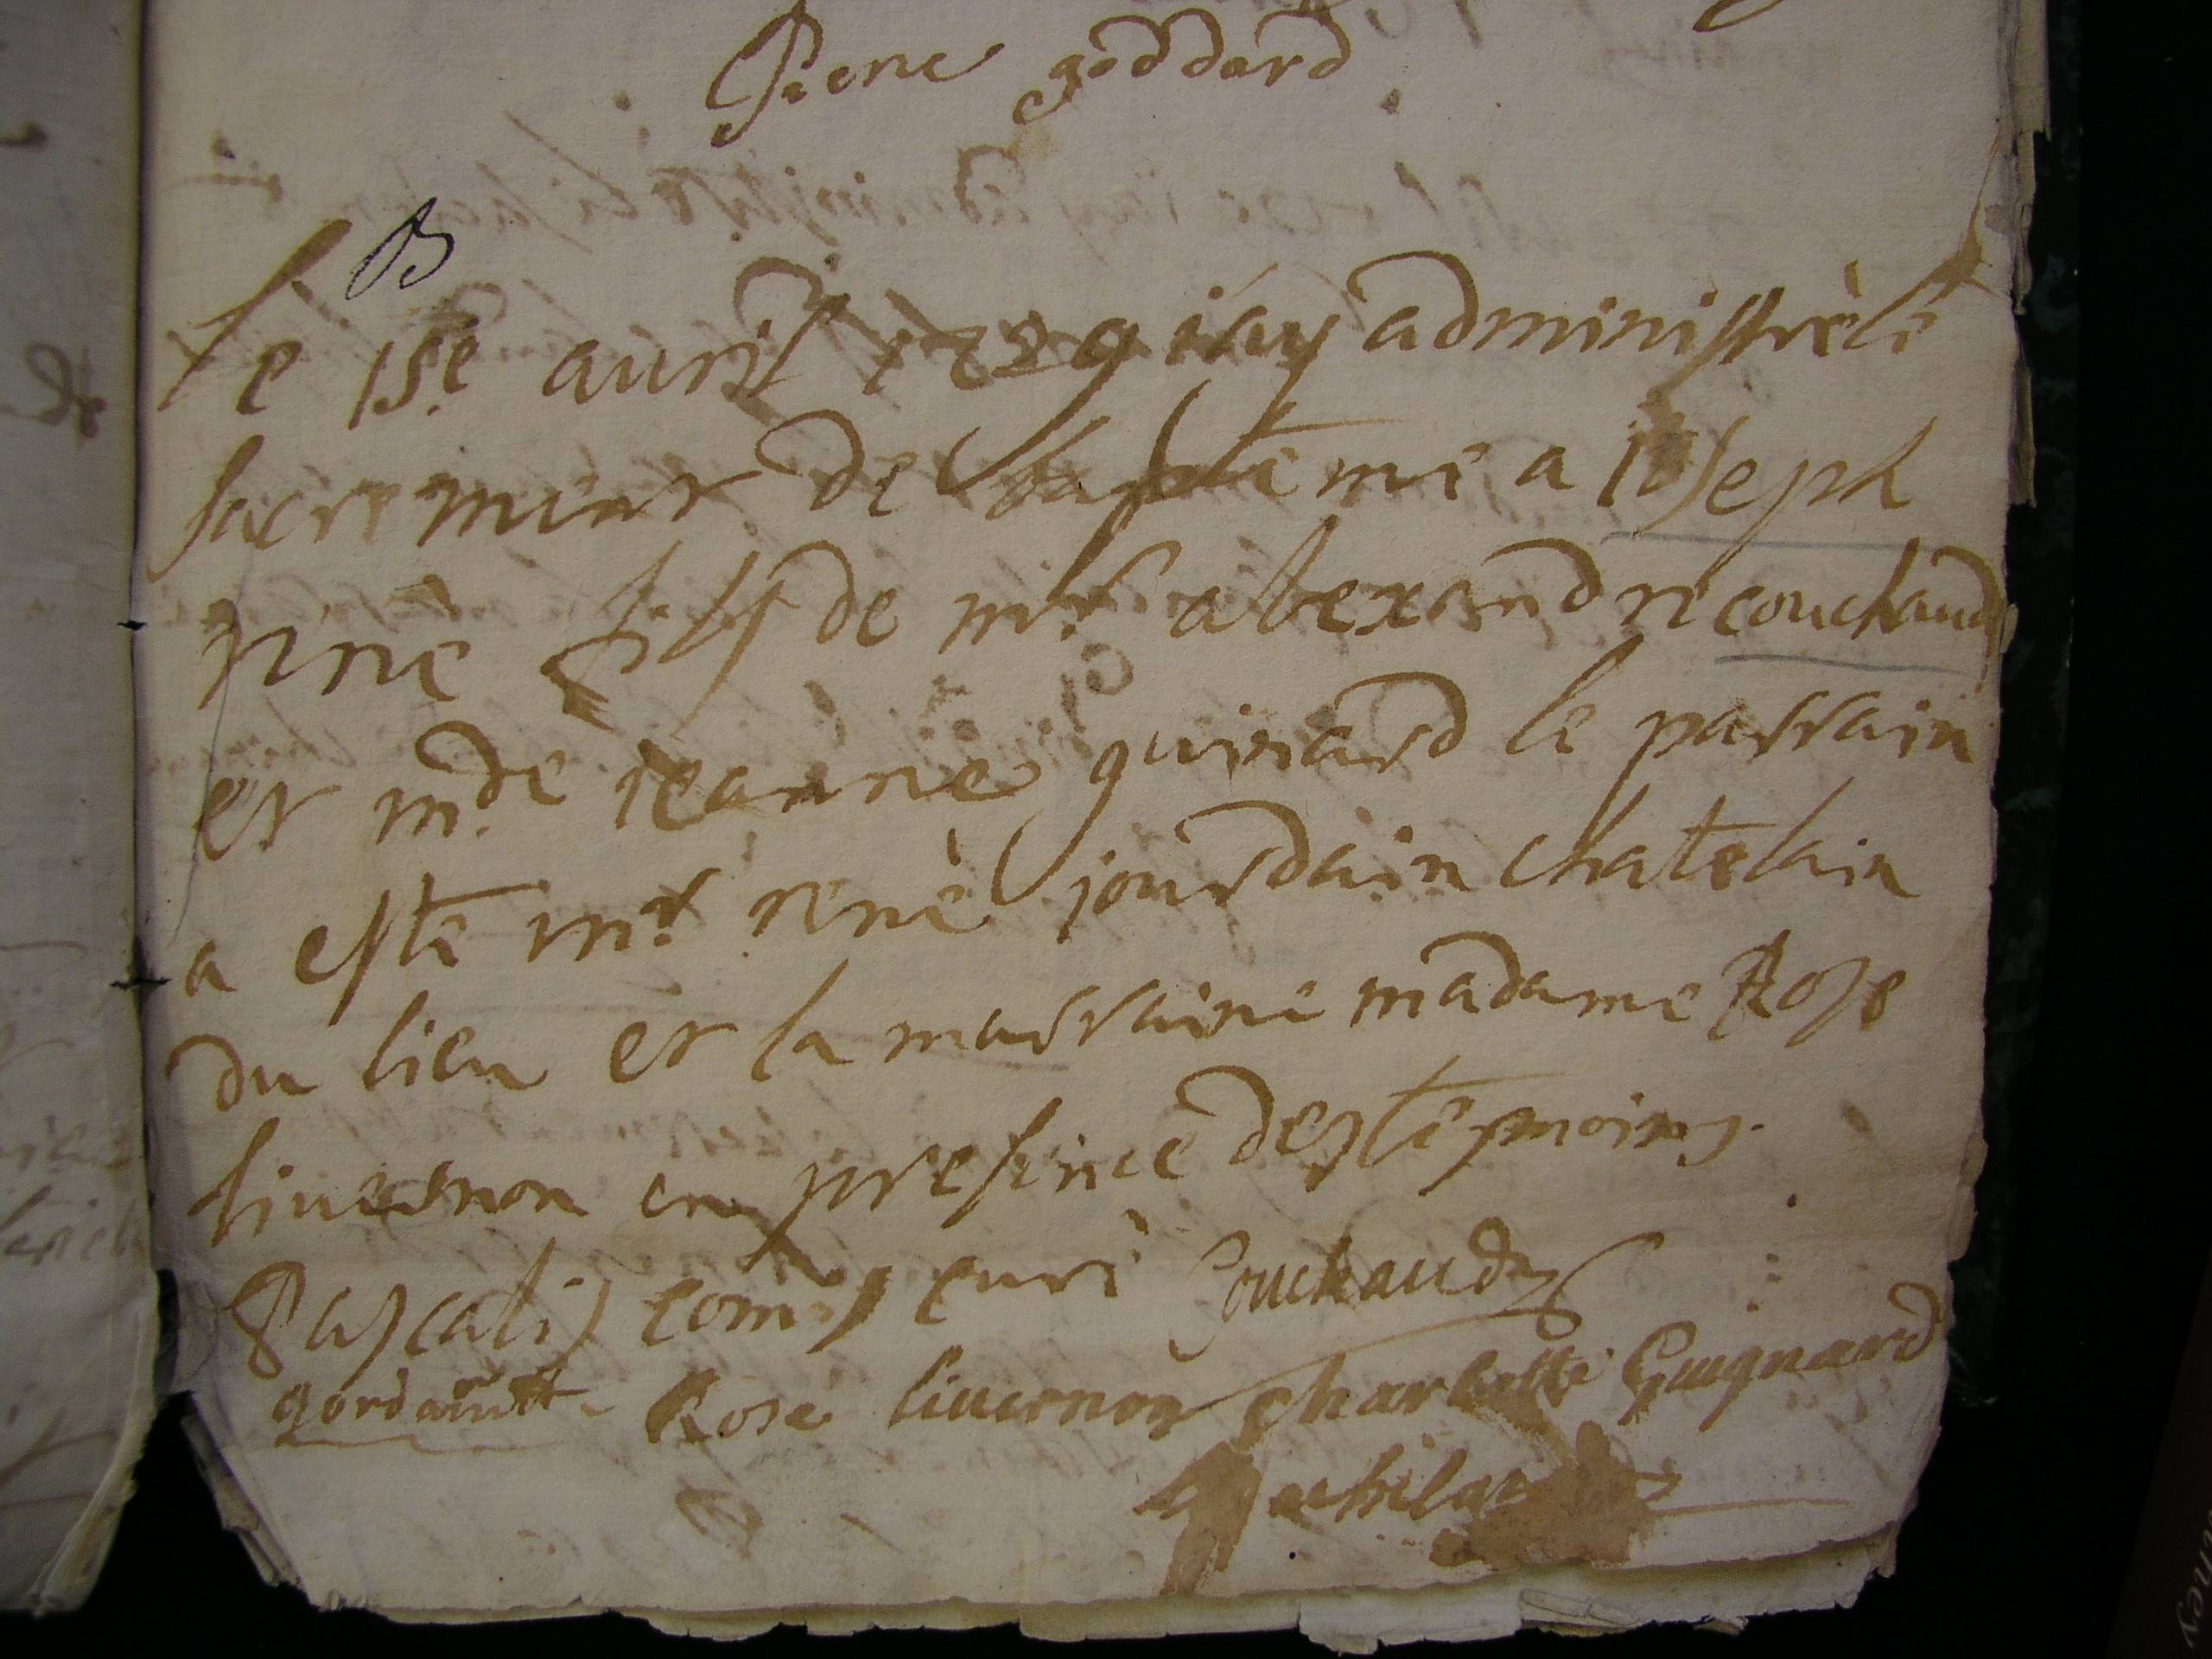 Piere goddard
B
le 15e auril 1729 iay administrè le
sacrement de baptême a Joseph
rené fils de mr. alexandre couchaud
et mde. jeanne guinard le parrain
a esté mr. renè jourdain chatelain
du lieu et la marraine madame Rose
liuernon en presence des tesmoins.
Pascalis comis curè Couchaud
Rose liuernon charlotte Guignard